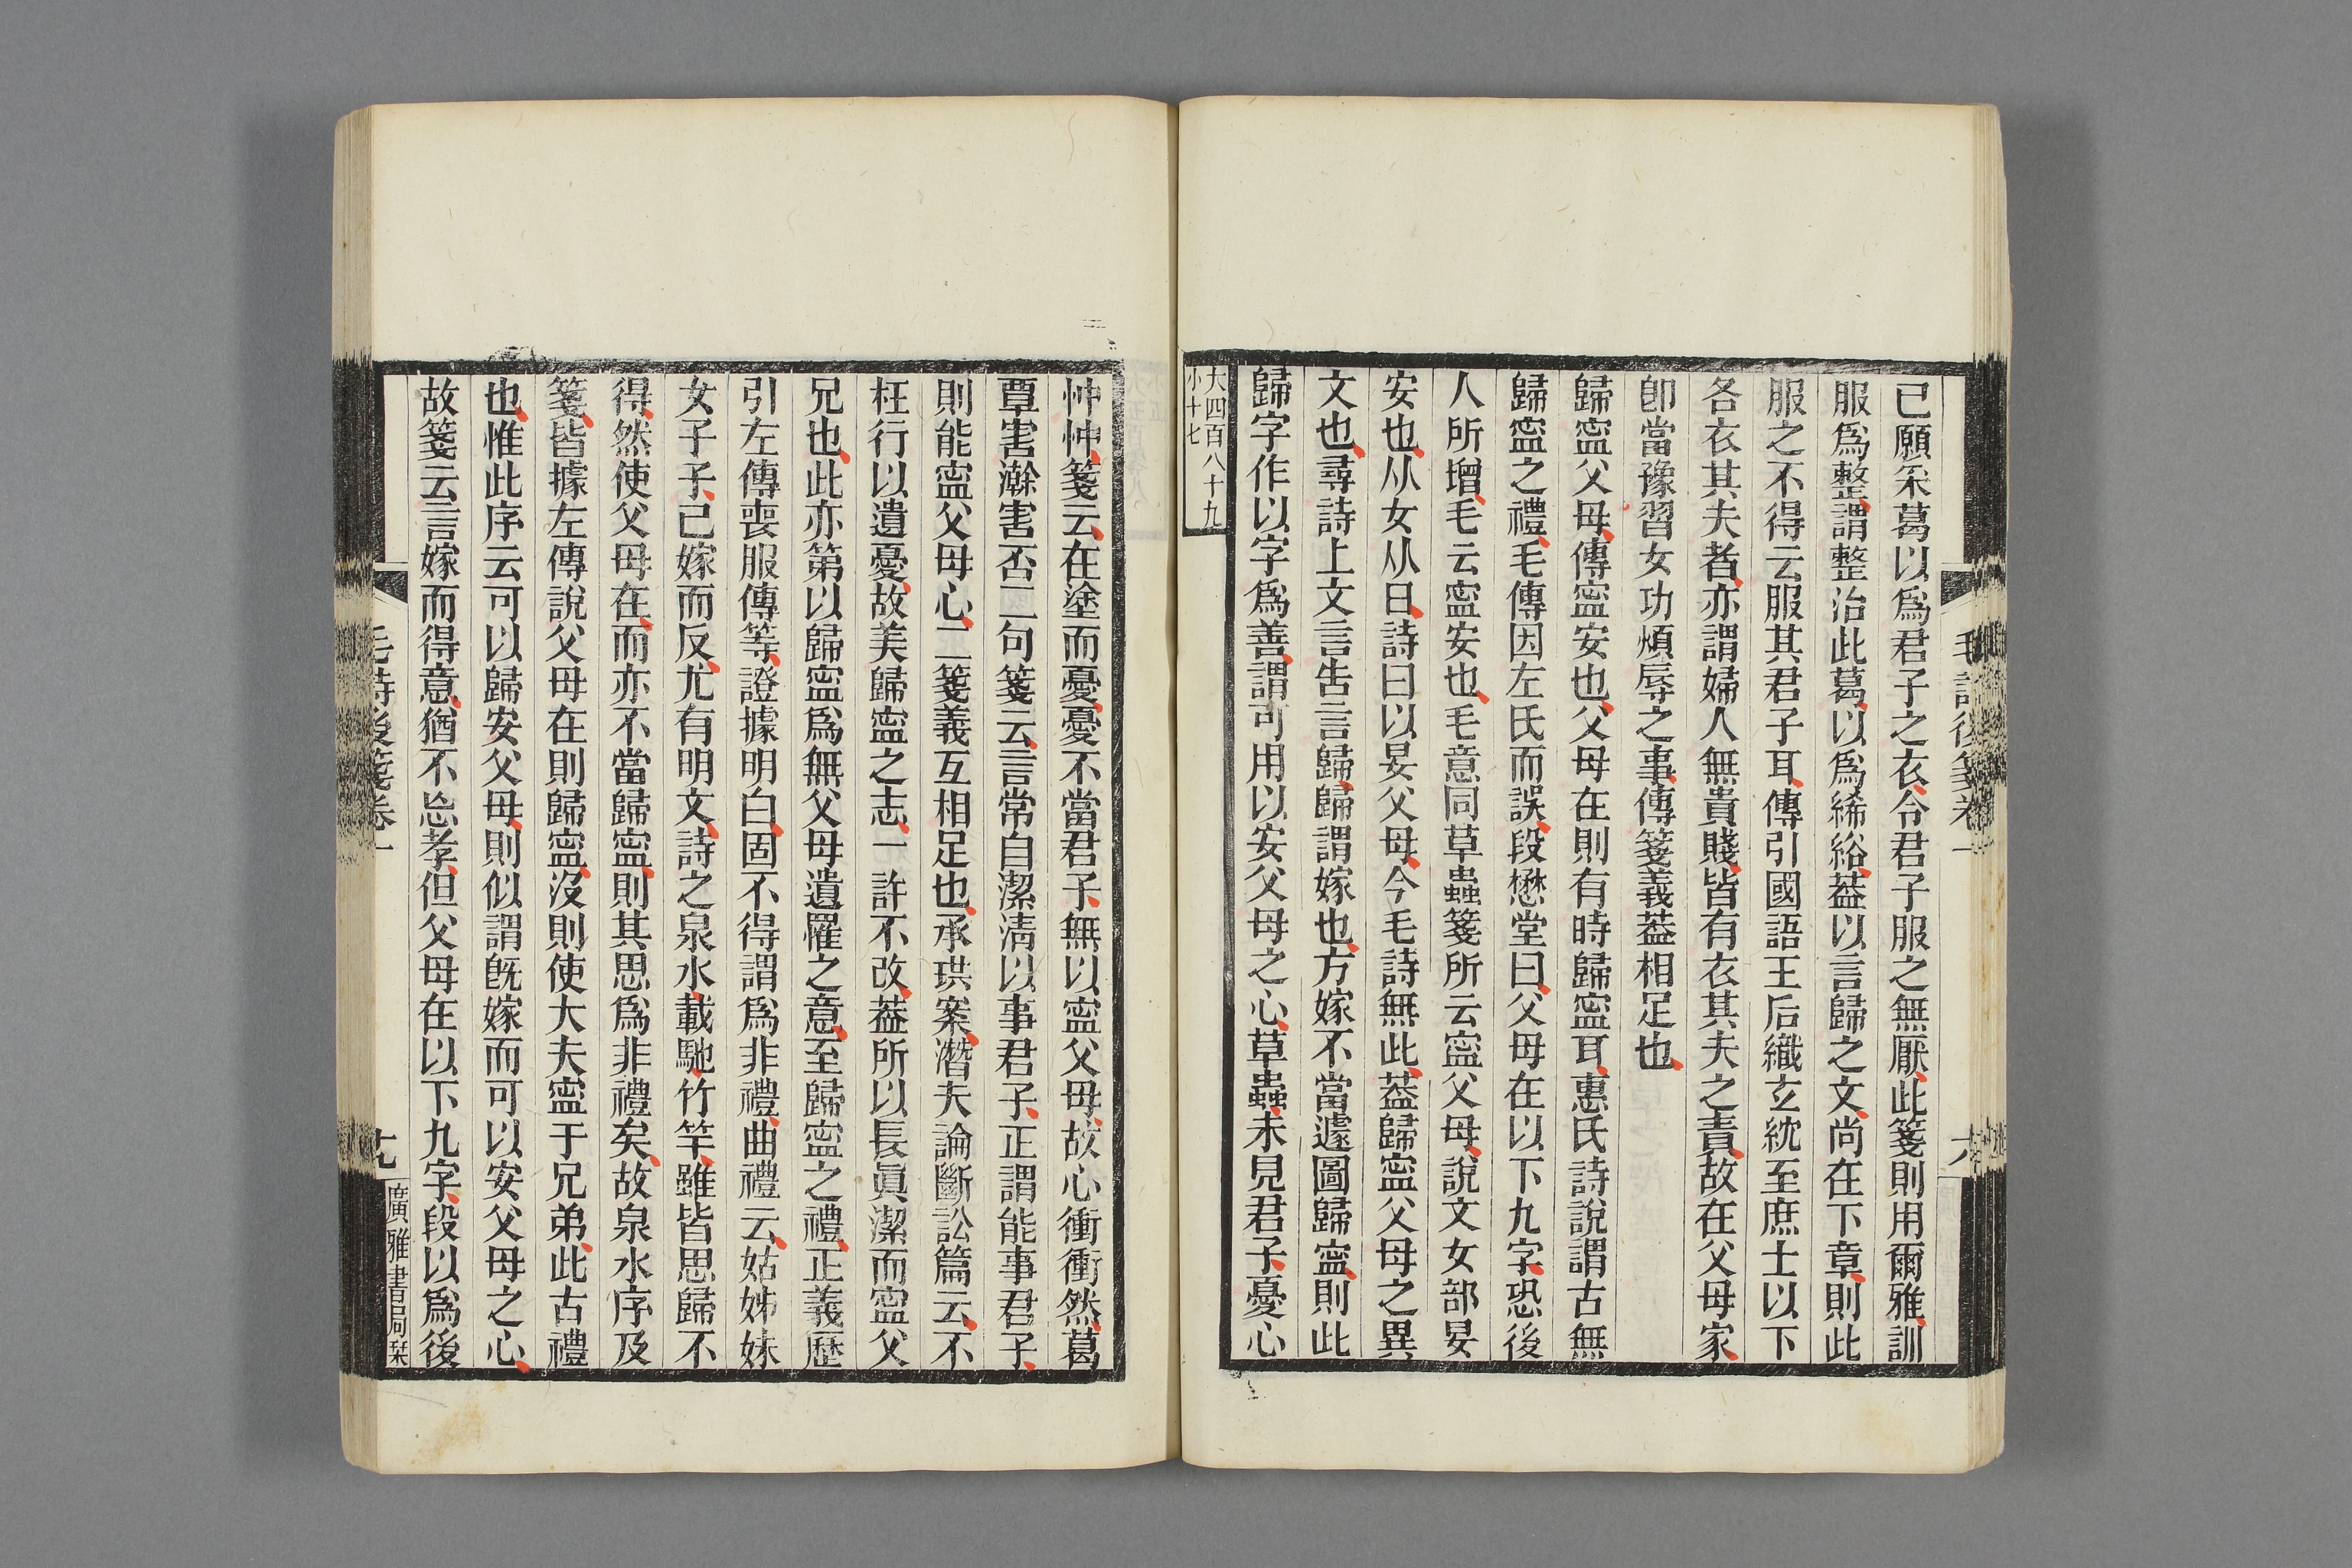 已願采葛以爲君子之衣令君子服之無厭此箋則用爾雅訓
服爲整謂整治此葛以爲絺綌葢以言歸之文尚在下章則此
服之不得云服其君子耳傳引國語王后織玄紞至庶士以下
各衣其夫者亦謂婦人無貴賤皆有衣其夫之責故在父母家
卽當豫習女功煩辱之事傳箋義葢相足也
歸寍父母傳寍安也父母在則有時歸寍耳惠氏詩說謂古無
歸寍之禮毛傳因左氏而誤段懋堂曰父母在以下九字恐後
人所增毛云寍安也毛意同草蟲箋所云寍父母說文女部晏
安也从女从日詩曰以晏父母今毛詩無此葢歸寍父母之異
文也尋詩上文言吿言歸歸謂嫁也方嫁不當遽圖歸寍則此
歸字作以字爲善謂可用以安父母之心草蟲未見君子憂心
大四百八十九
小十七
毛詩後箋卷一
忡忡箋云在塗而憂憂不當君子無以寍父母故心衝衝然葛
覃害澣害否二句箋云言常自潔淸以事君子正謂能事君子
則能寍父母心二箋義互相足也承珙案潛夫論斷訟篇云不
枉行以遺憂故美歸寍之志一許不改葢所以長眞潔而寍父
兄也此亦第以歸寍爲無父母遺罹之意至歸寍之禮正義歷
引左傳喪服傳等證據明白固不得謂爲非禮曲禮云姑姊妹
女子子已嫁而反尤有明文詩之泉水載馳竹竿雖皆思歸不
得然使父母在而亦不當歸寍則其思爲非禮矣故泉水序及
箋皆據左傳說父母在則歸寍沒則使大夫寍于兄弟此古禮
也惟此序云可以歸安父母則似謂旣嫁而可以安父母之心
故箋云言嫁而得意猶不忘孝但父母在以下九字段以爲後
毛詩後箋卷一
廣雅書局栞